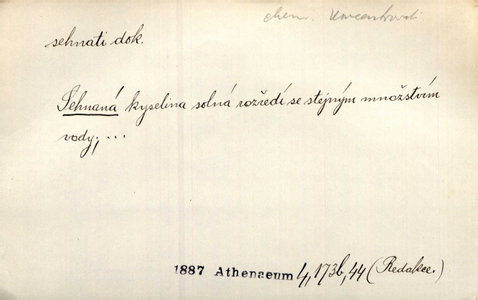 chem. koncentrovati
sehnati dok.
Sehnaná kyselina solná rozředí se stejným množstvím
vody, ...
1887 Athenaeum 4, 173b, 44 (Redakce.)